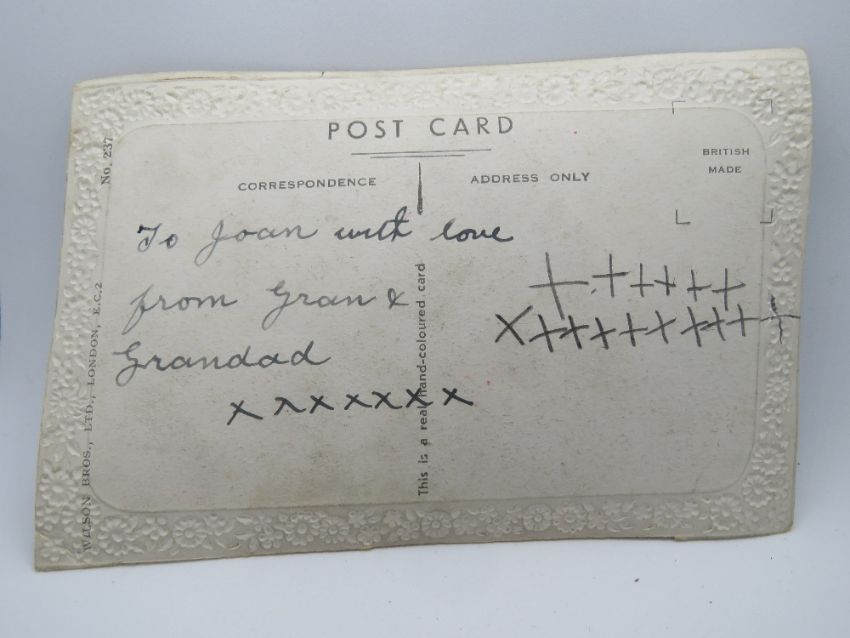 POST CARD
CORRESPONDENCE
ADDRESS ONLY
BRITISH
MADE
No. 237
WILSON BROS., LTD., LONDON, E.C.2
This is a real hand-coloured card
To Joan with love
from Gran &
Grandad
x x x x x x x
+ + + + + +
X + + + + + + + + +